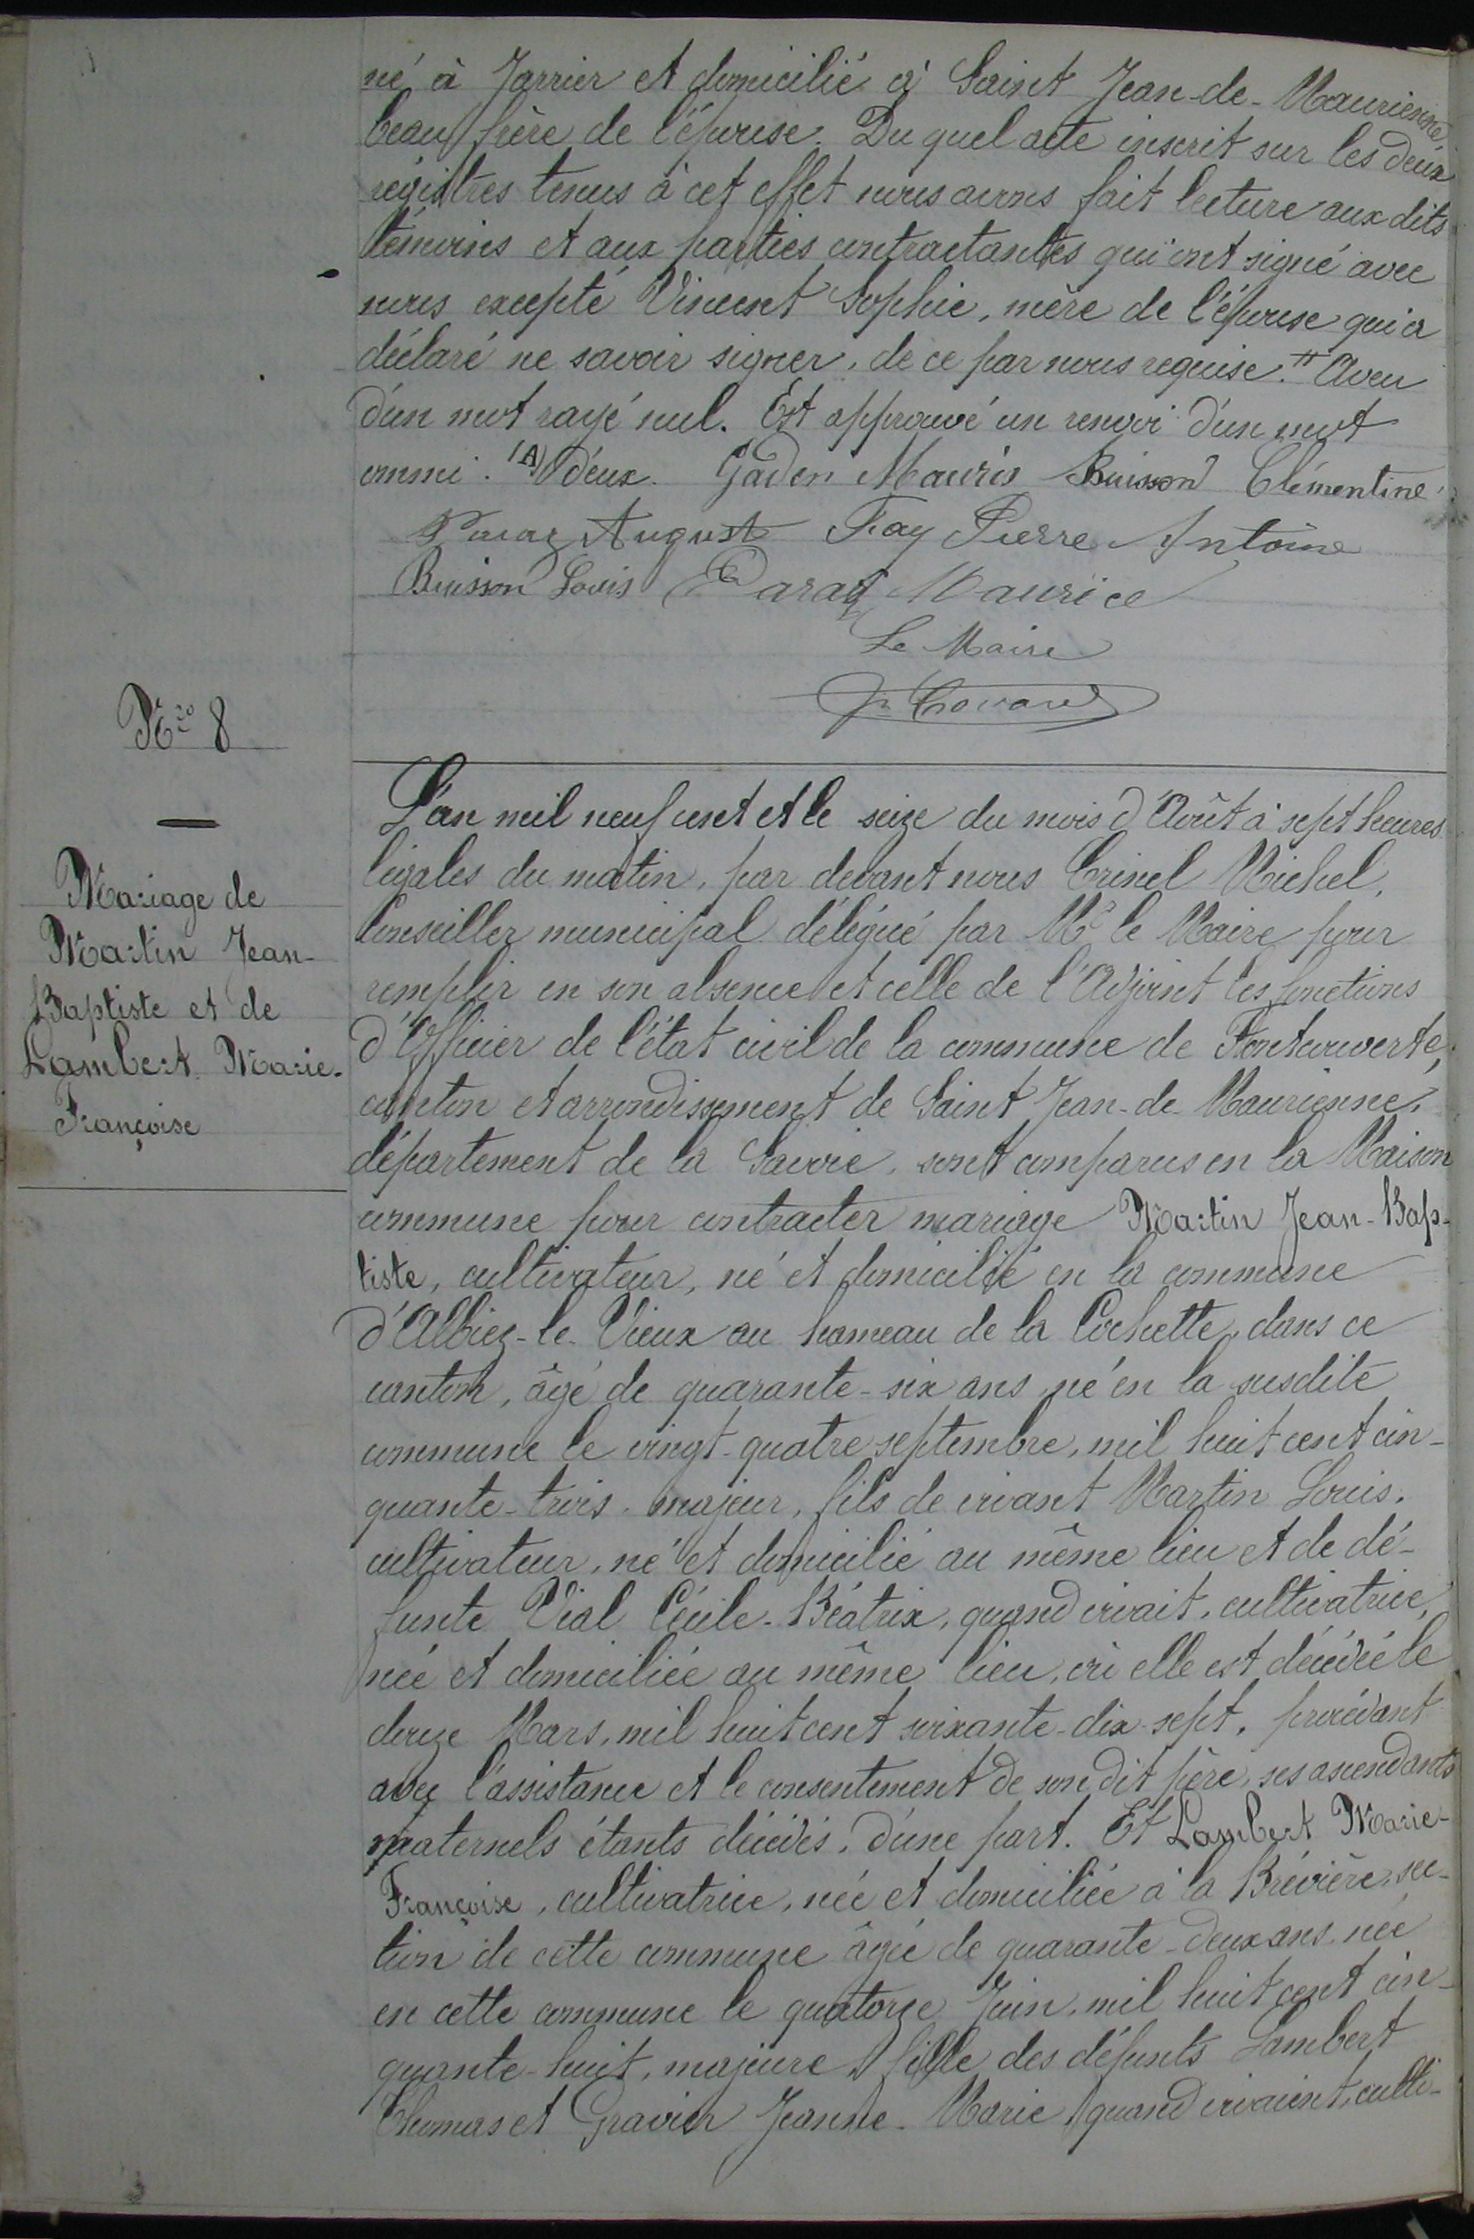 né à Jarrier et domicilié à Saint Jean-de-Maurienne
beau frère de l'épouse. Du quel acte inscrit sur les deux
registres tenus à cet effet nous avons fait lecture aux dits
témoins et aux parties contractantes qui ont signé avec
nous excepté Vincent Sophie, mère de l'épouse qui a
déclaré ne savoir signer, de ce par nous requise. Aveu
d'un mot rayé nul. Est approuvé un renvoi d'un mot
ommi. (A) deux. Gaden Mauris Buisson Clémentine
August Fay Pierre Antoine
Buisson Louis Darag Maurice
Le Maire
No 8
Mariage de
Martin Jean-
Baptiste et de
Lambert Marie-
Françoise
L'an mil neuf cent et le seize du mois d'Août à sept heures
légales du matin, par devant nous Crinel Michel,
Conseiller municipal délégué par Mr le Maire pour
remplir en son absence et celle de l'Adjoint les fonctions
d'Officier de l'état civil de la commune de Fontcouverte,
canton et arrondissement de Saint Jean-de-Maurienne,
département de la Savoie, sont comparus en la Maison
commune pour contracter mariage Martin Jean-Bap-
tiste, cultivateur, né et domicilié en la commune
d'Albiez-le-Vieux au hameau de la Cochette, dans ce
canton, âgé de quarante-six ans, né en la susdite
commune le vingt-quatre septembre, mil huit cent cin-
quante-trois, majeur, fils de vivant Martin Louis,
cultivateur, né et domicilié au même lieu et de dé-
funte Vial Cécile-Béatrix, quand vivait, cultivatrice,
née et domiciliée au même lieu, où elle est décédée le
douze Mars, mil huit cent soixante-dix-sept, procédant
avec l'assistance et le consentement de son dit père, ses ascendants
maternels étants décédés, d'une part. Et Lambert Marie-
Françoise, cultivatrice, née et domiciliée à la Brévière, sec-
tion de cette commune âgée de quarante-deux ans, née
en cette commune le quatorze Juin, mil huit cent cin-
quante-huit, majeure, fille des défunts Lambert
Thomas et Gravier Jeanne-Marie, quand vivaient, culti-